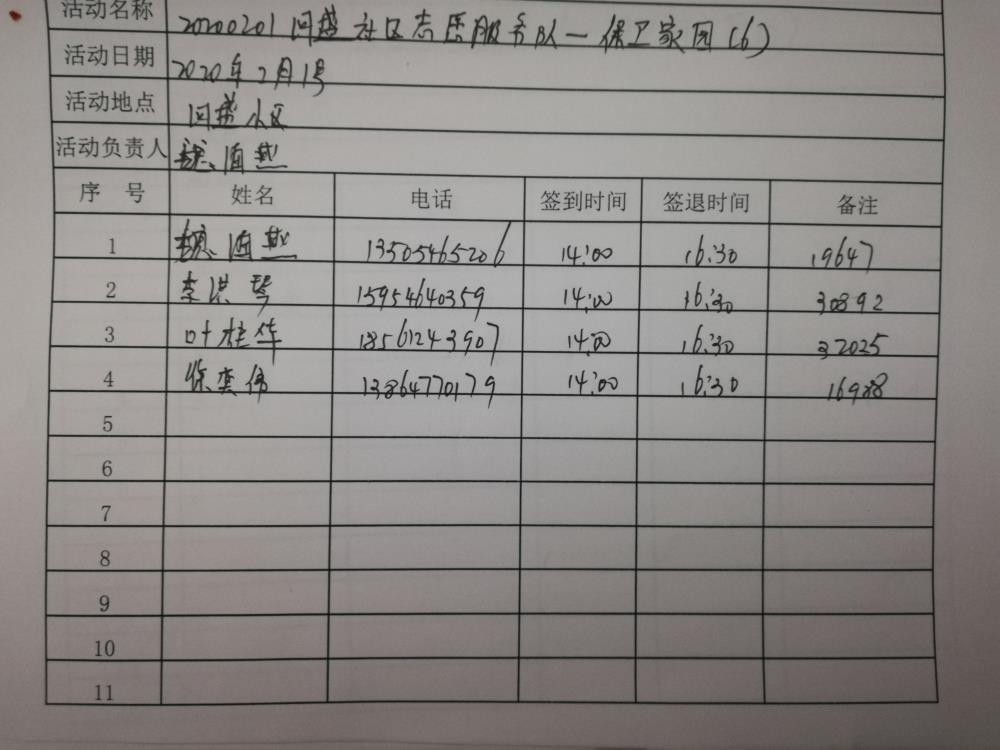 活动名称 20200201 同盛社区志愿服务队一保卫家园(6)
活动日期 2020年2月1号
活动地点 同盛小区
活动负责人
序号 姓名 电话 签到时间 签退时间 备注
1 13505465206 14:00 16:30 19647
2 李洪琴 15954640359 14:00 16:30 30892
3 叶桂华 18561243907 14:00 16:30 32025
4 徐奕伟 13864770179 14:00 16:30 16988
5
6
7
8
9
10
11